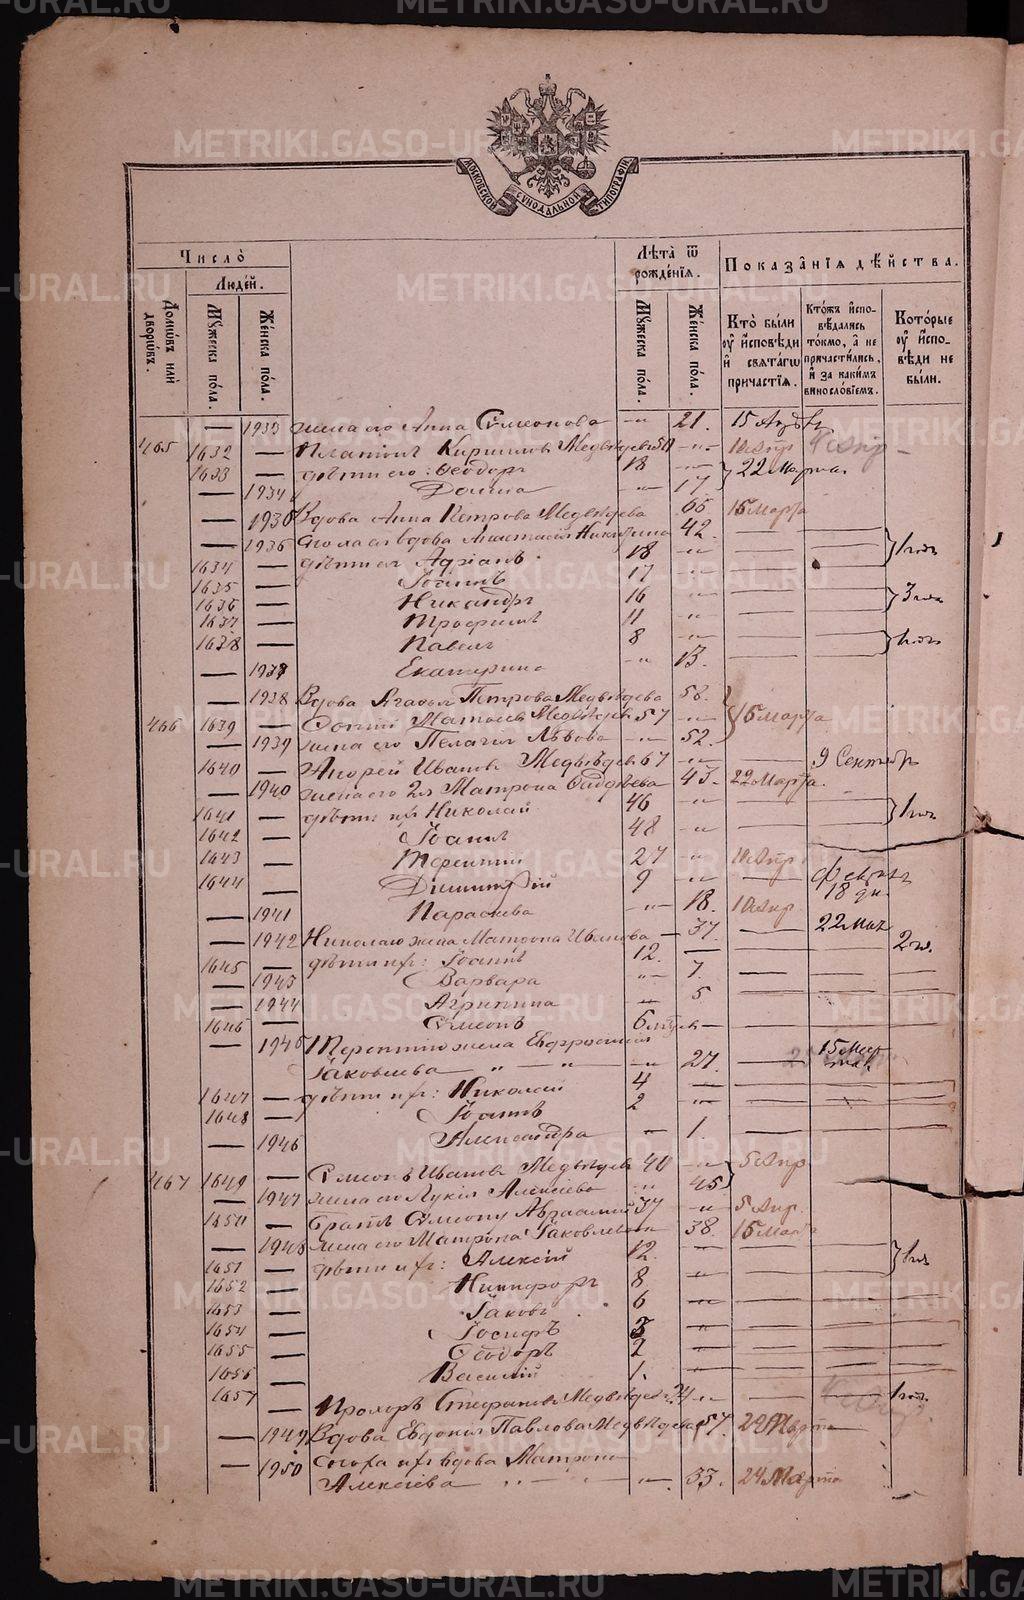 МОСКОВСКОЙ СѴНОДАЛЬНОЙ ТИПОГРАФІИ
Число̀
Людей.
Домѡвъ или дворѡвъ.
Мꙋжеска пола.
Женска пола.
Лѣта̀ ѿ рожденія.
Мꙋжеска пола.
Женска пола.
Показанія дѣйства.
Кто̀ были ᲂу҆ исповѣди и свѧтагѡ причастіѧ.
Ктожъ исповѣдались токмо, а не причастились, и за какимъ винословіемъ.
Которые ᲂу҆ исповѣди не были.
— 1933 жена его Анна Симеонова -"- 21. 15
465 1632 — Платонъ Кириловъ Медвѣдевъ -"- 10 Апр
1633 — дѣти его: Ѳеодоръ 18 -"- 22 Марта
— 1934 Домна -"- 17
— 1935 Вдова Анна Петрова Медвѣдева 65 15 Марта
— 1936 Сноха ея вдова Анастасія Никитина 42.
1634 — дѣти ея Адріанъ 18 -"-
1635 — Іоаннъ 17 -"-
1636 — Никандръ 16 -"-
1637 — Трофимъ 11 -"-
1638 — Павелъ 8 -"-
— 1937 Екатерина -"- 13.
— 1938 Вдова Агафья Петрова Медвѣдева 58.
466 1639 — Медвѣдевъ 57 -"- 15 Марта
— 1939 жена его Пелагія Львова -"- 52.
1640 — Андрей Ивановъ Медвѣдевъ 67 -"- 9 Сентябр
— 1940 жена его 2я Матрона Ѳаддѣева 43. 22 Марта.
1641 — дѣти ихъ Николай 46 -"-
1642 — Іоаннъ 48 -"-
1643 — Терентій 27 " 10 Апр
1644 — Димитрій 9 -"- 18
— 1941 Параскева -"- 18. 10 Апр.
— 1942 Николаю жена Матрона Иванова — 37. — 22 Мая
1645 — дѣти ихъ: Іоаннъ 12. —
— 1943 Варвара -"- 7.
— 1944 Агрипина — 5
1646 — Симеонъ 6
— 1945 Терентію жена Евфросинія
Іаковлева " — " — -"- 27. — 15
1647 — дѣти ихъ: Николай 4 -"-
1648 — Іоаннъ 2 -"-
— 1946 Александра — 1
467 1649 — Симеонъ Ивановъ Медвѣдевъ 40 -"- 5 Апр
— 1947 жена его Лукія Алексіева " 45
1650 — братъ Симеону Аврамій 37 -"- 5 Апр.
— 1948 жена его Матрона Іаковлева 38. 15 Мар
1651 — дѣти ихъ: Алексій 12.
1652 — Никифоръ 8
1653 — Іаковъ 6 -"-
1654 — Іосифъ 3 -"-
1655 — Ѳеодоръ 2 -"-
1656 — Василій 1. -"-
1657 — Прохоръ Стефановъ Медвѣдевъ -"-
— 1949 Вдова Евдокія Павлова Медвѣдева 57. 29 Марта
— 1950 Сноха ихъ вдова Матрона
Алексіева " — " — -"- 35. 24 Марта
METRIKI.GASO-URAL.RU